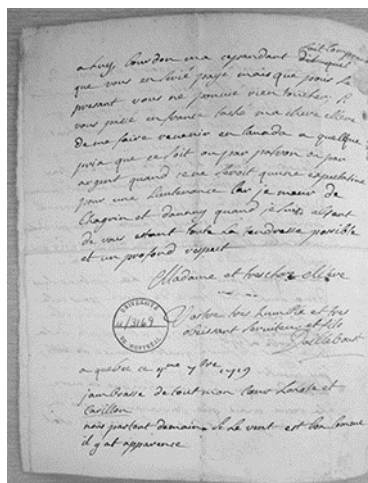 a luy, Courdon ma cependant dit
que vous en serié payé mais que pour le
presant vous ne pouvié rien toucher, Je
vous prie en france taché ma chere Mere
de me faire revenir en Canada a quelque
prix que ce soit ou par patron ou par
argent quand ce ne seroit qu'une
pour une Lieutenance Car je meur de
Chagrin et danuy quand je suis absent
de vous etant toute la tendresse possible
et un profond respect
Madame et tres chere Mere
Vostre tres humble et tres
obeissant serviteur et fils
Daillebout
UNIVERSITÉ
u/3169
DE MONTRÉAL
a quebec ce 7bre
jambrasse de tout mon Coeur et
Carillon
nous partons demain le vent est bon comme
il y at apparence